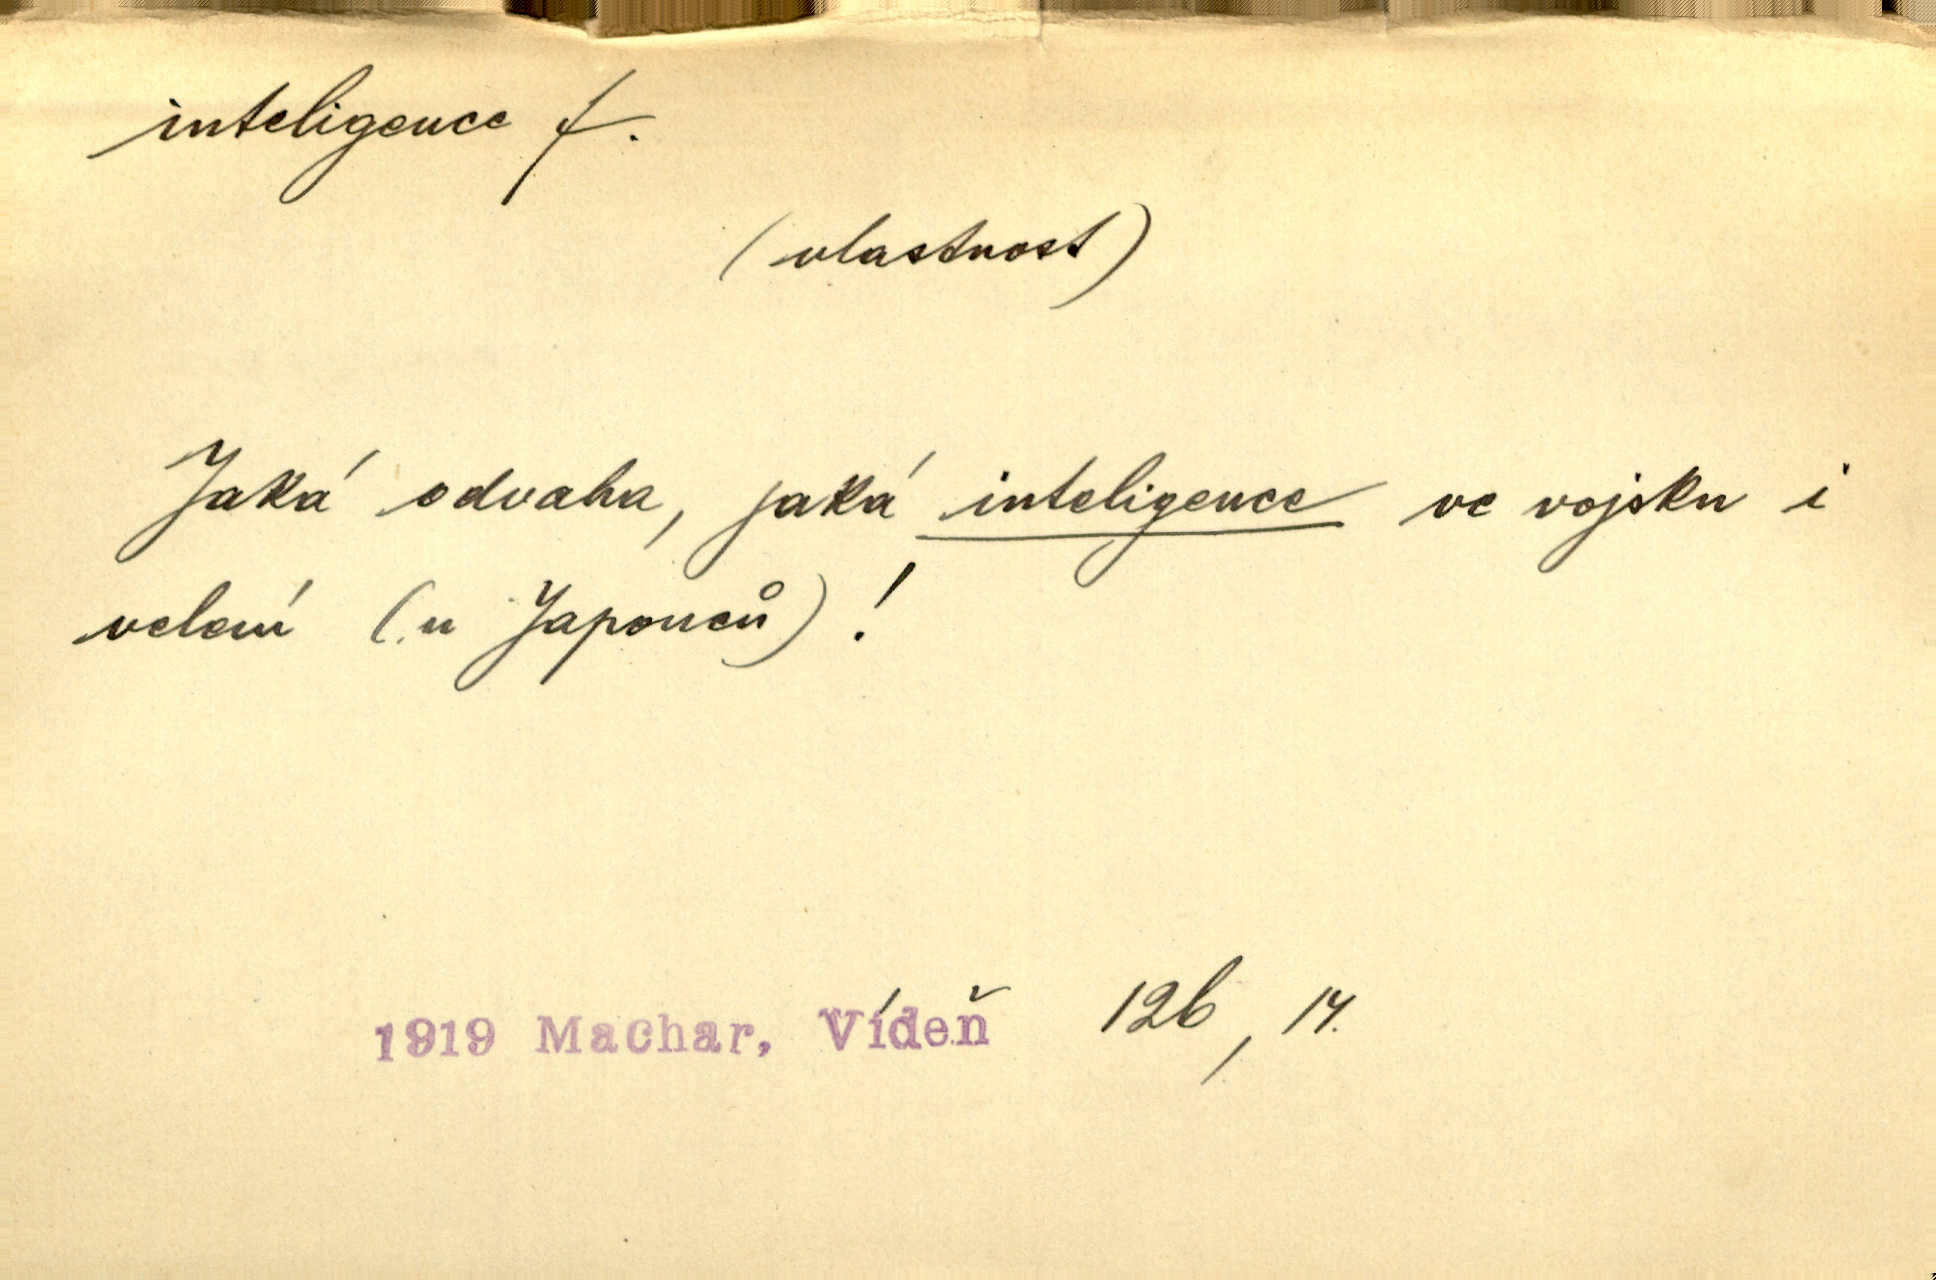 inteligence f.
(vlastnost)
Jaká odvaha, jaká inteligence ve vojsku i
velení (u Japonců)!
1919 Machar, Vídeň 126, 14.